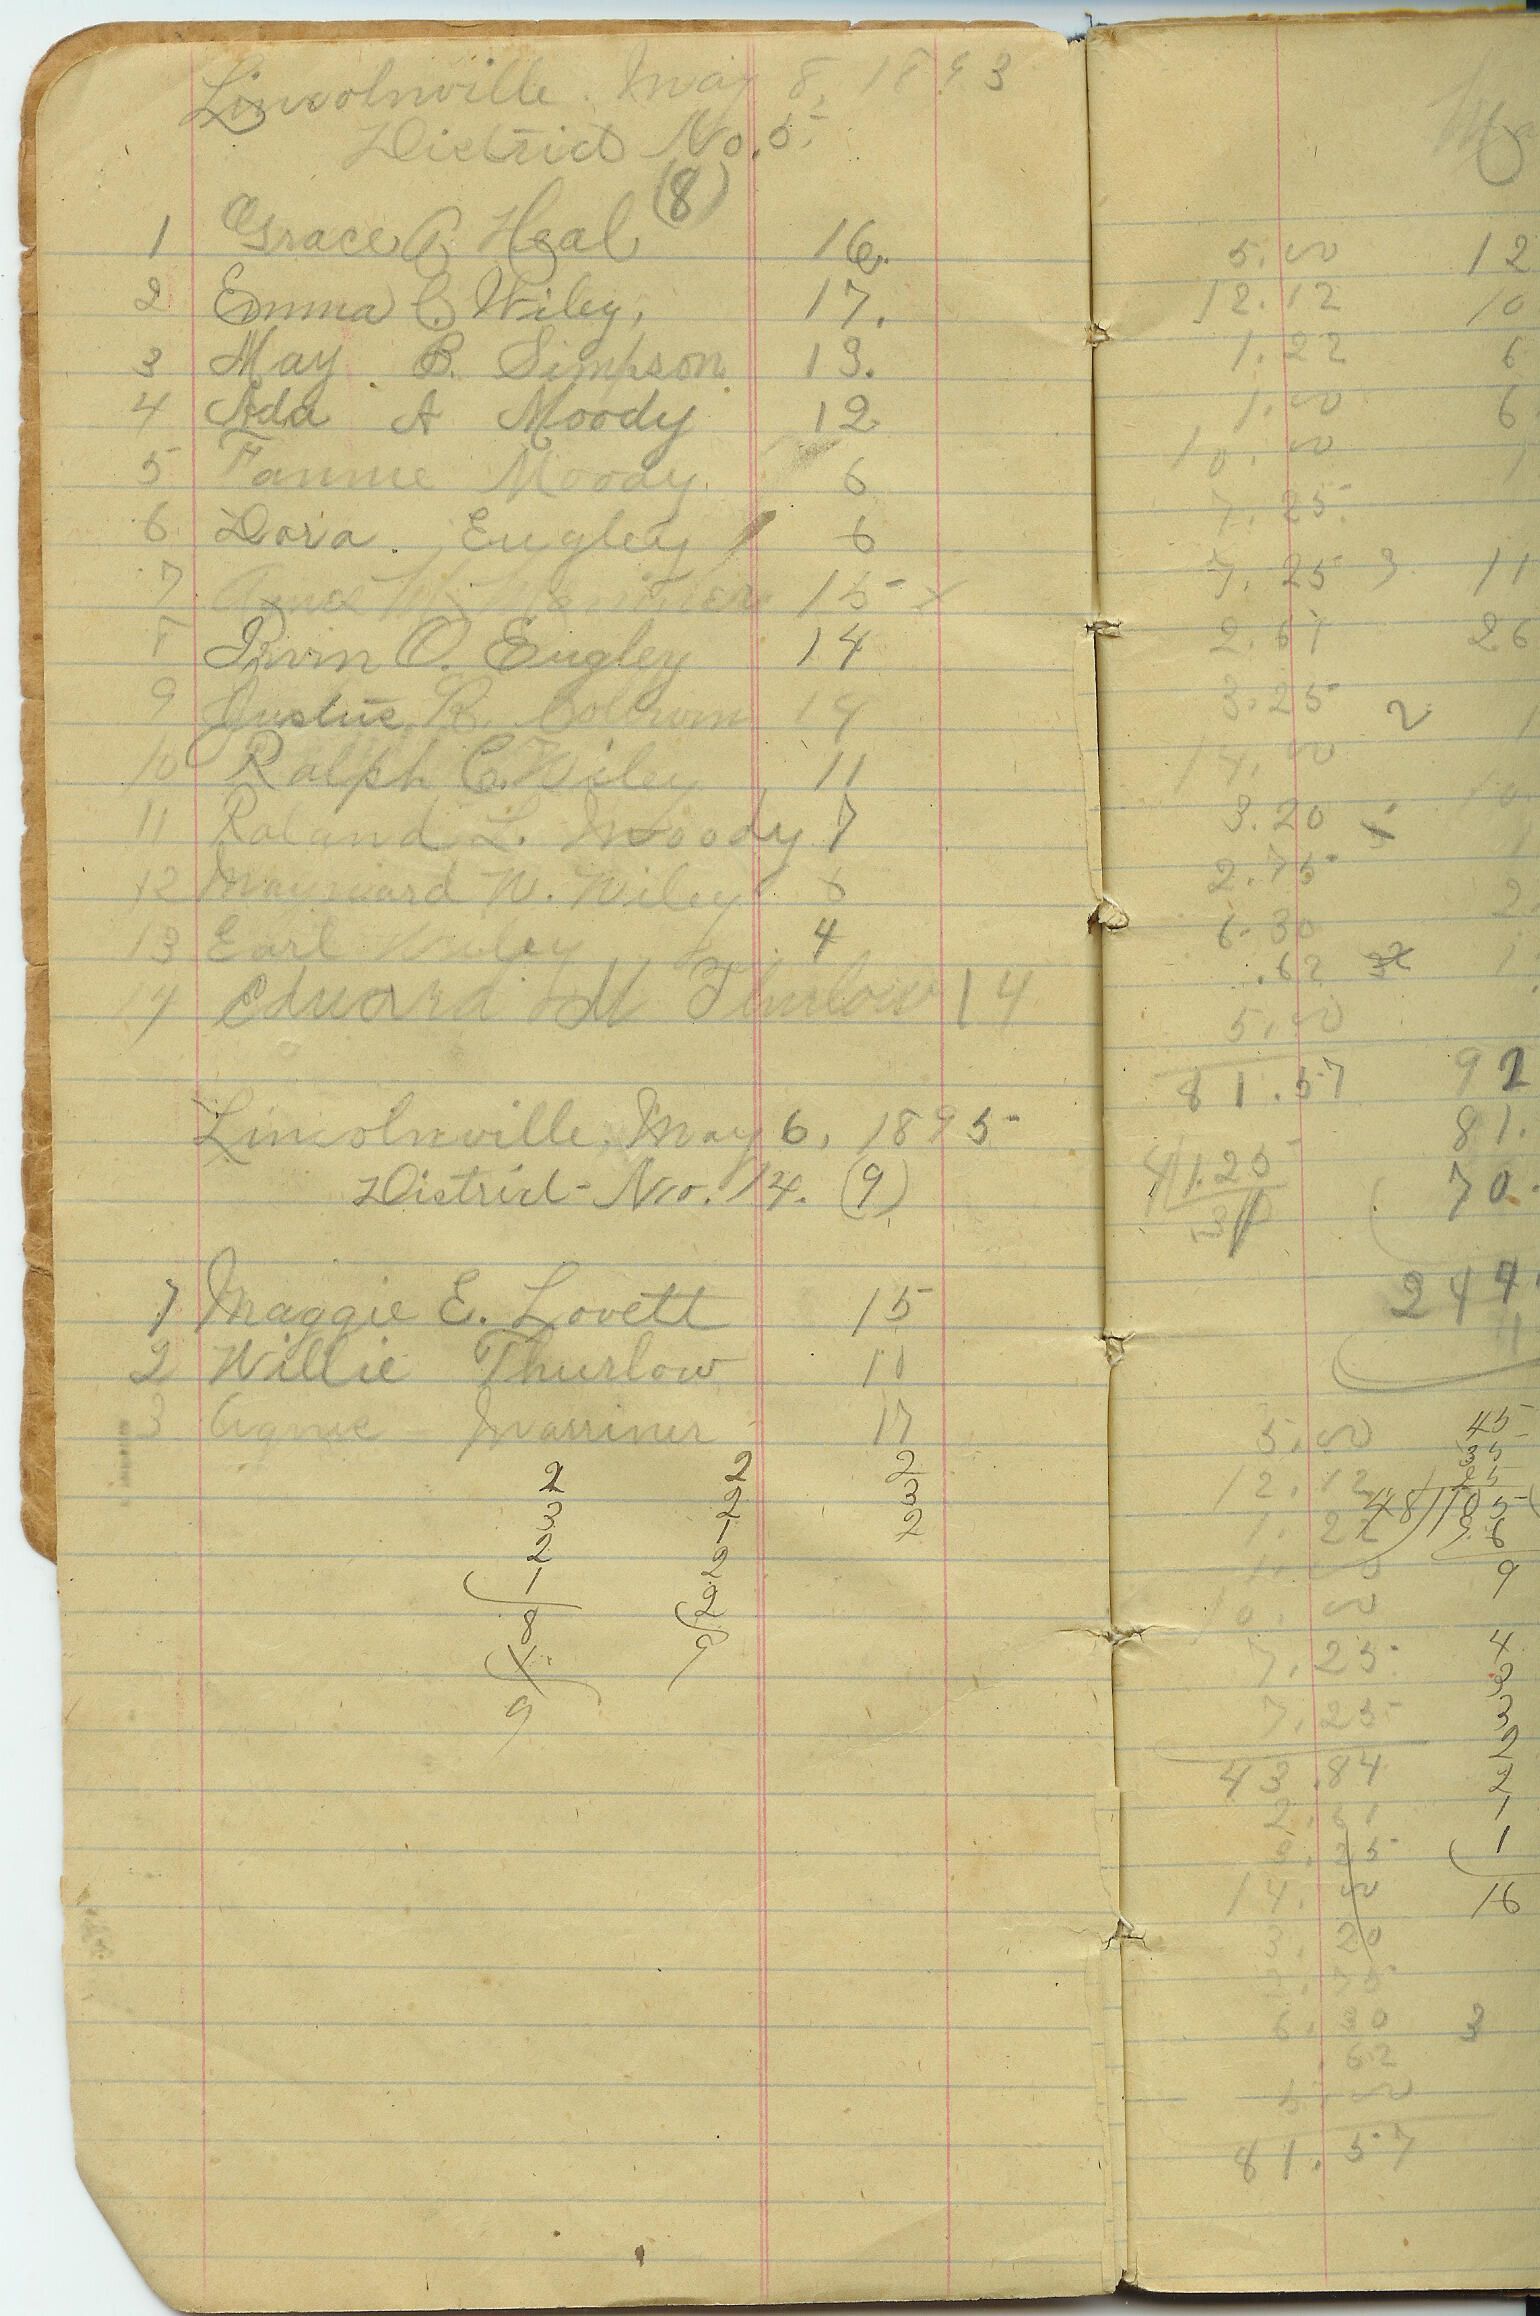 Lincolnville. May 8, 1893
District No. 5.
(8)
1 Grace A. Heal 16.
2 Emma C. Wiley, 17.
3 May B. Simpson 13.
4 Ada A Moody 12.
5 Fannie Moody. 6
6 Dora. Eugley 6
7 15 x
8 Irvin O. Eugley 14
9 Justus R. 14
10 Ralph C. Wiley 11
11 Roland L. Moody 7
12 Maynard W. Wiley 6
13 Earl Wiley 4
14 Edward M Thurlow 14
Lincolnville, May 6, 1895
District No. 14. (9)
1 Maggie E. Lovett 15
2 Willie Thurlow 10
3 Agnes Marriner 17
2 2 2
3 2 3
2 1 2
1 2
8 2
1 9
9
5.00 12
12.12 10
1.22 6
1.00 6
10.00 1
7.25
7.25 3 11
2.61 26
3.25 2 1
14.00
3.20 10
2.75 1
6.30 2
.62 1
5.00
81.57 92
81.
4)1.20 70.
.30
244
11
5.00 45
35
12.12 25
1.22 48)105
96
1.00 9
10.00
7.25 4
3
7.25 3
2
43.84 2
2.61 1
3.25 1
14.00 16
3.20
2.75
6.30 3
.62
5.00
81.57